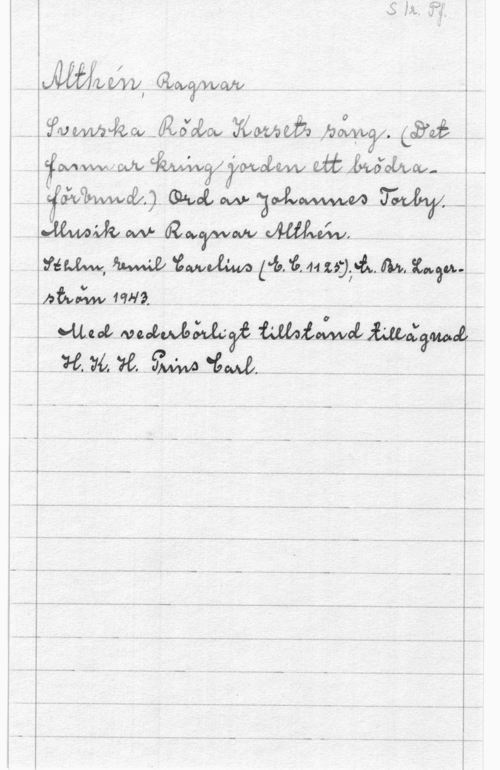 S Ir. Pf.
Althén, Ragnar
Svenska Röda Korsets sång. (Det
famnar kring jorden ett brödra-
förbund.) Ord av Johannes Torby.
Musik av Ragnar Althén.
Sthlm, Emil Carelius (E. C. 1125); tr. Br. Lager-
ström 1943.
Med vederbörligt tillstånd tillägnad
H. K. H. Prins Carl.